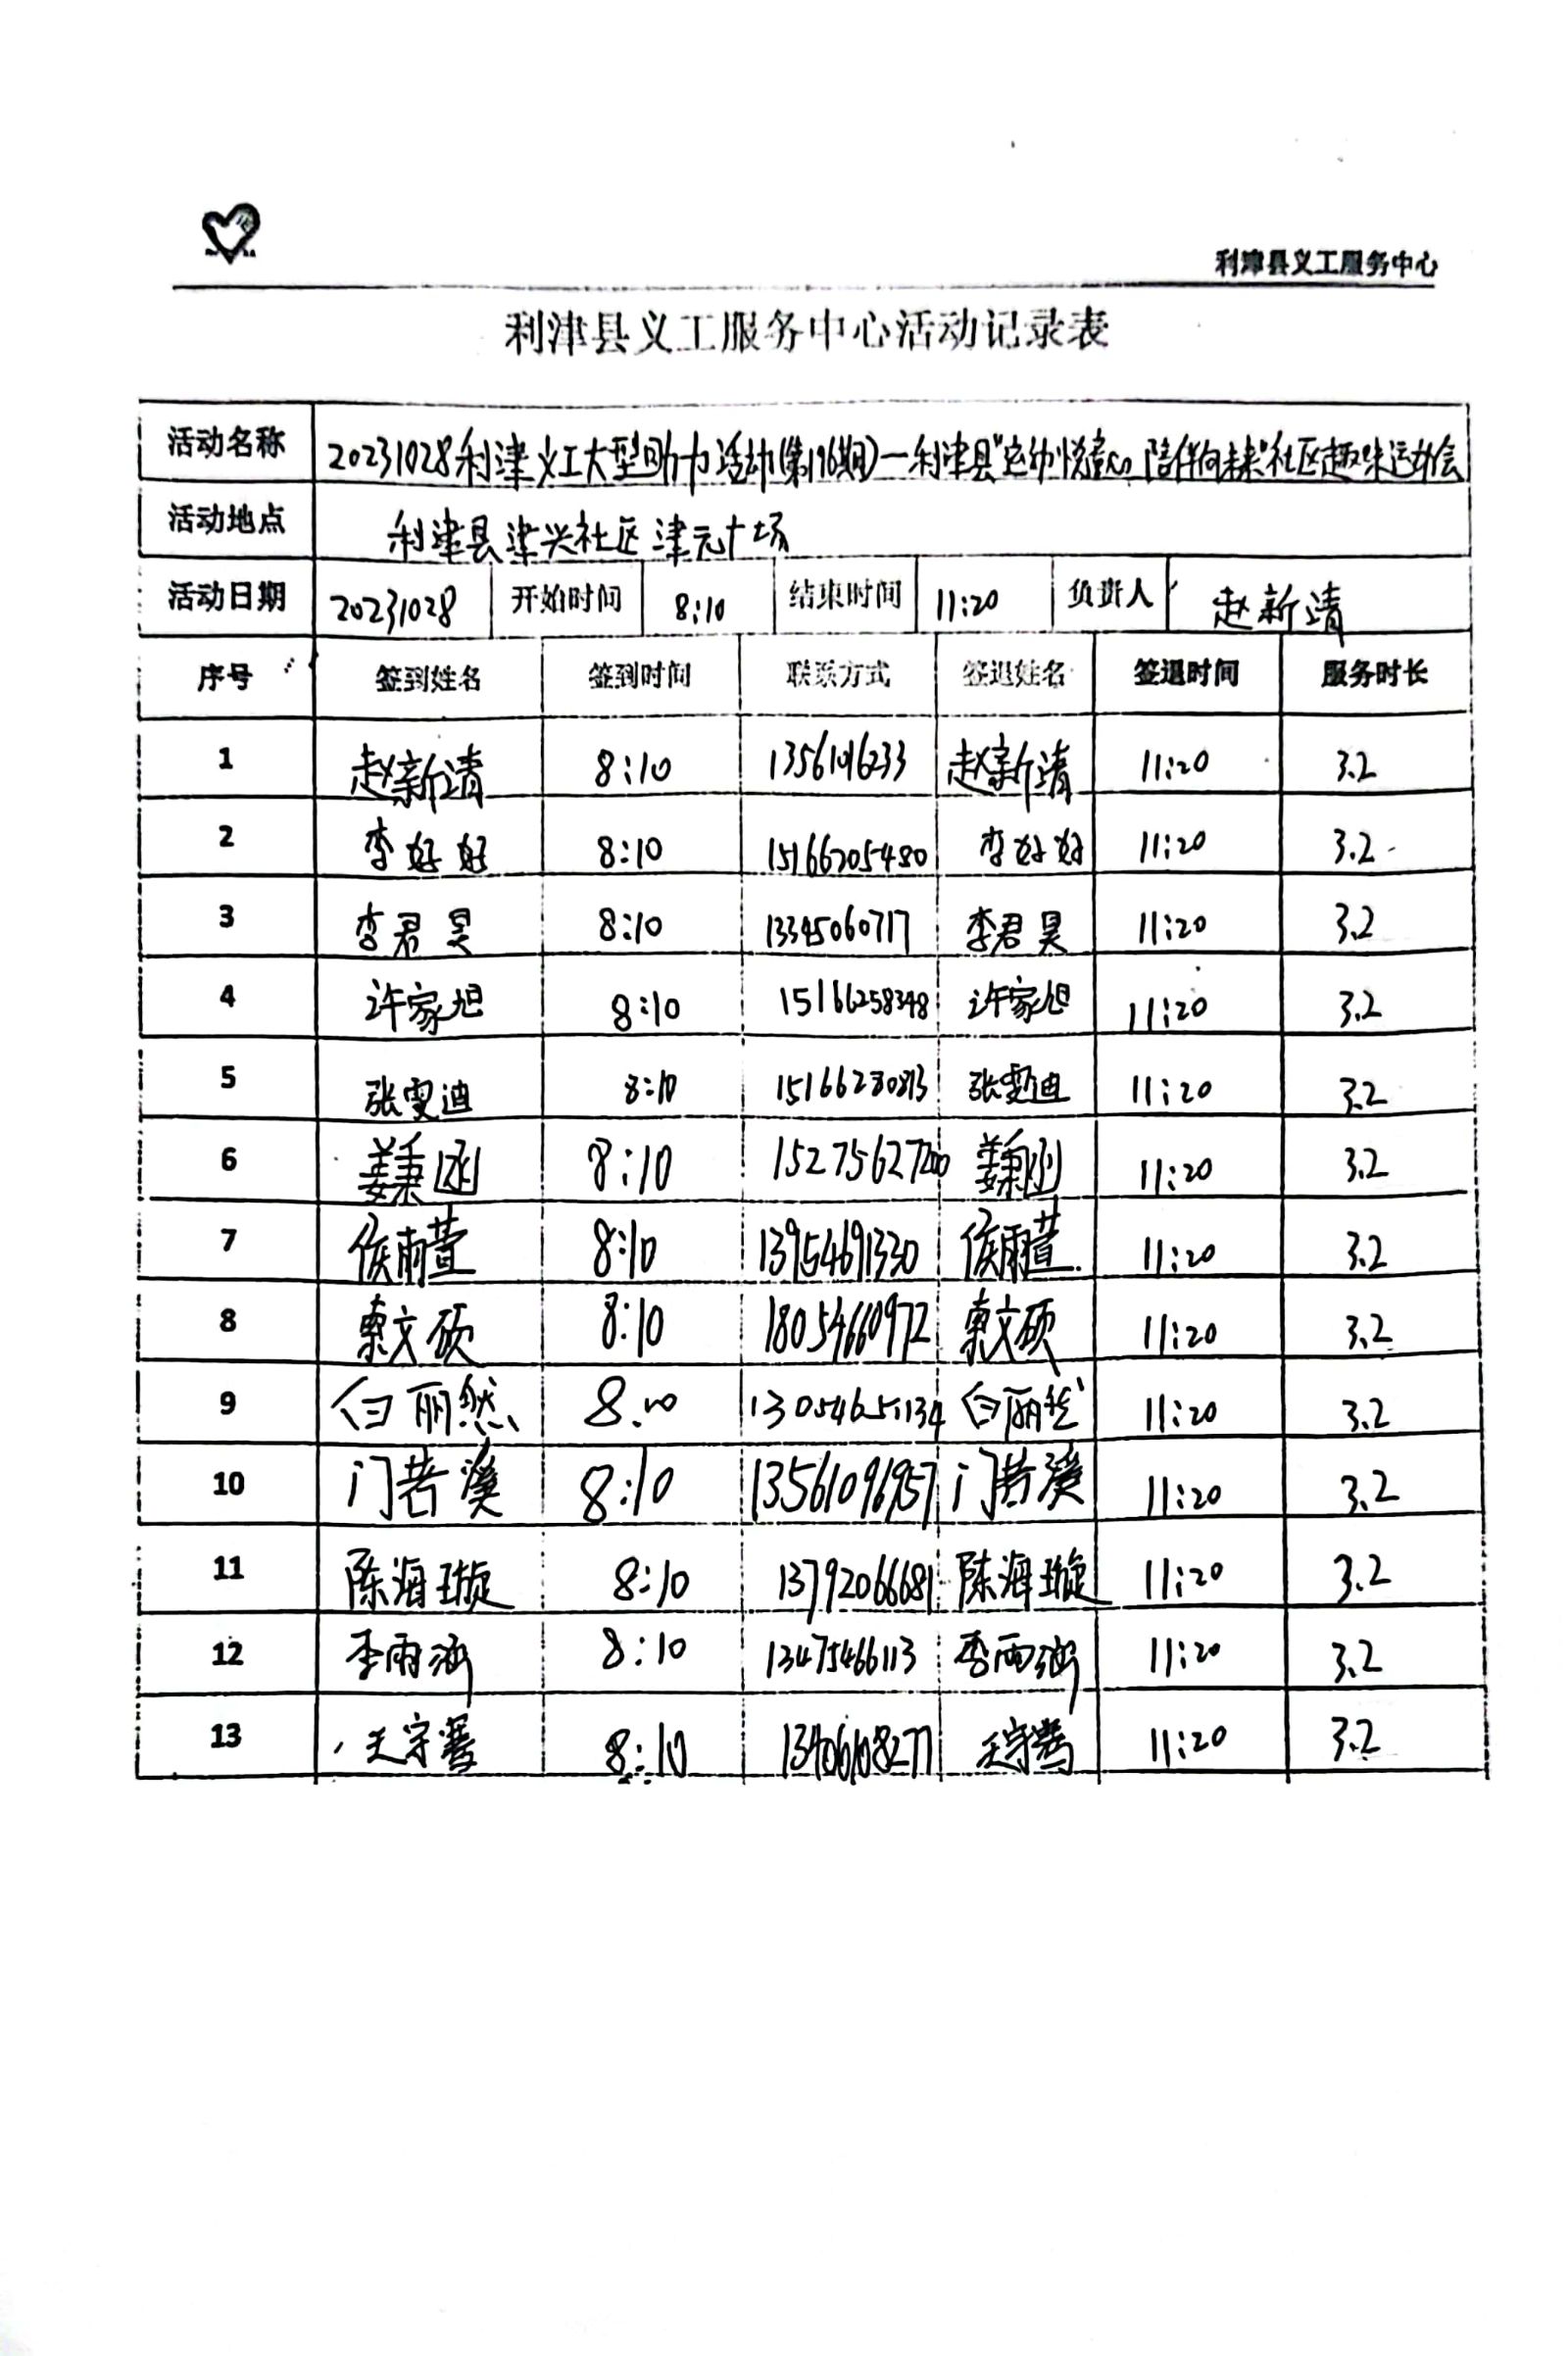 利津县义工服务中心
利津县义工服务中心活动记录表
活动名称 20231028利津义工大型助力活动(第196期)—利津县"运动悦童心 陪伴向未来"社区趣味运动会
活动地点 利津县津兴社区津元广场
活动日期 20231028 开始时间 8:10 结束时间 11:20 负责人 赵新清
序号 签到姓名 签到时间 联系方式 签退姓名 签退时间 服务时长
1 赵新清 8:10 赵新清 11:20 3.2
2 李好好 8:10 15166205480 李好好 11:20 3.2
3 李君昊 8:10 13345060717 李君昊 11:20 3.2
4 许家旭 8:10 15166258348 许家旭 11:20 3.2
5 张雯迪 8:10 张雯迪 11:20 3.2
6 姜秉函 8:10 15275627200 姜秉函 11:20 3.2
7 侯雨萱 8:10 13954691330 侯雨萱 11:20 3.2
8 索文硕 8:10 18054660972 索文硕 11:20 3.2
9 白丽然 13054651134 白丽然 11:20 3.2
10 门若溪 8:10 13561096957 门若溪 11:20 3.2
11 陈海璇 8:10 13792066681 陈海璇 11:20 3.2
12 李雨涵 8:10 13475466113 李雨涵 11:20 3.2
13 8:10 13406108277 11:20 3.2